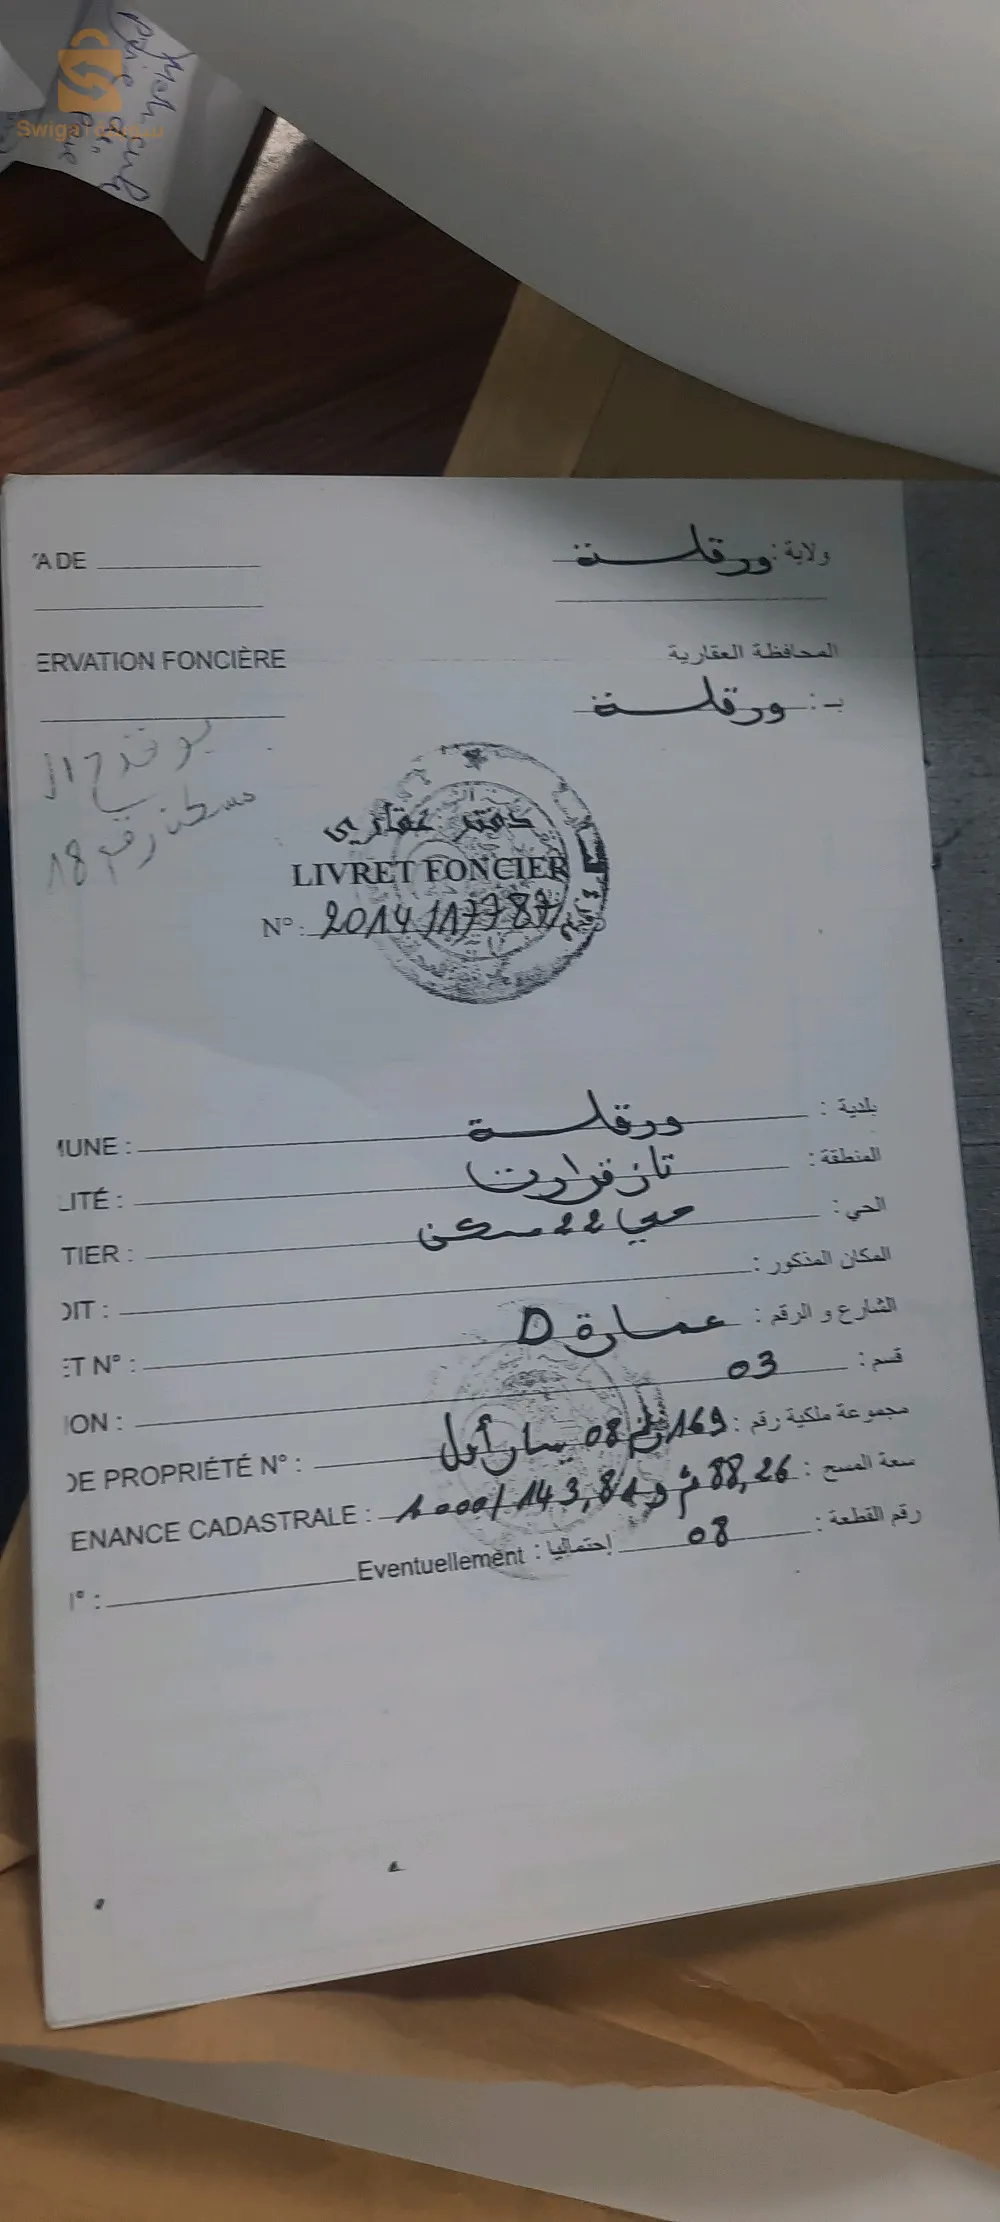 ولاية: ورقلة
'ADE
المحافظة العقارية
ERVATION FONCIÈRE
بـ: ورقلة
مسكن رقم 18
دفتر عقاري
LIVRET FONCIER
N°: 2014/177787
بلدية: ورقلة
MUNE :
المنطقة:
LITÉ :
الحي: حي 22 سكن
TIER :
المكان المذكور:
DIT :
الشارع و الرقم: عمارة D
ET N° :
قسم: 03
ION :
مجموعة ملكية رقم: 169 رقم 08 يسار أول
DE PROPRIÉTÉ N° :
سعة المسح: 88,26 م و 1000/143,81
ENANCE CADASTRALE :
رقم القطعة: 08 إحتماليا: Eventuellement
I° :